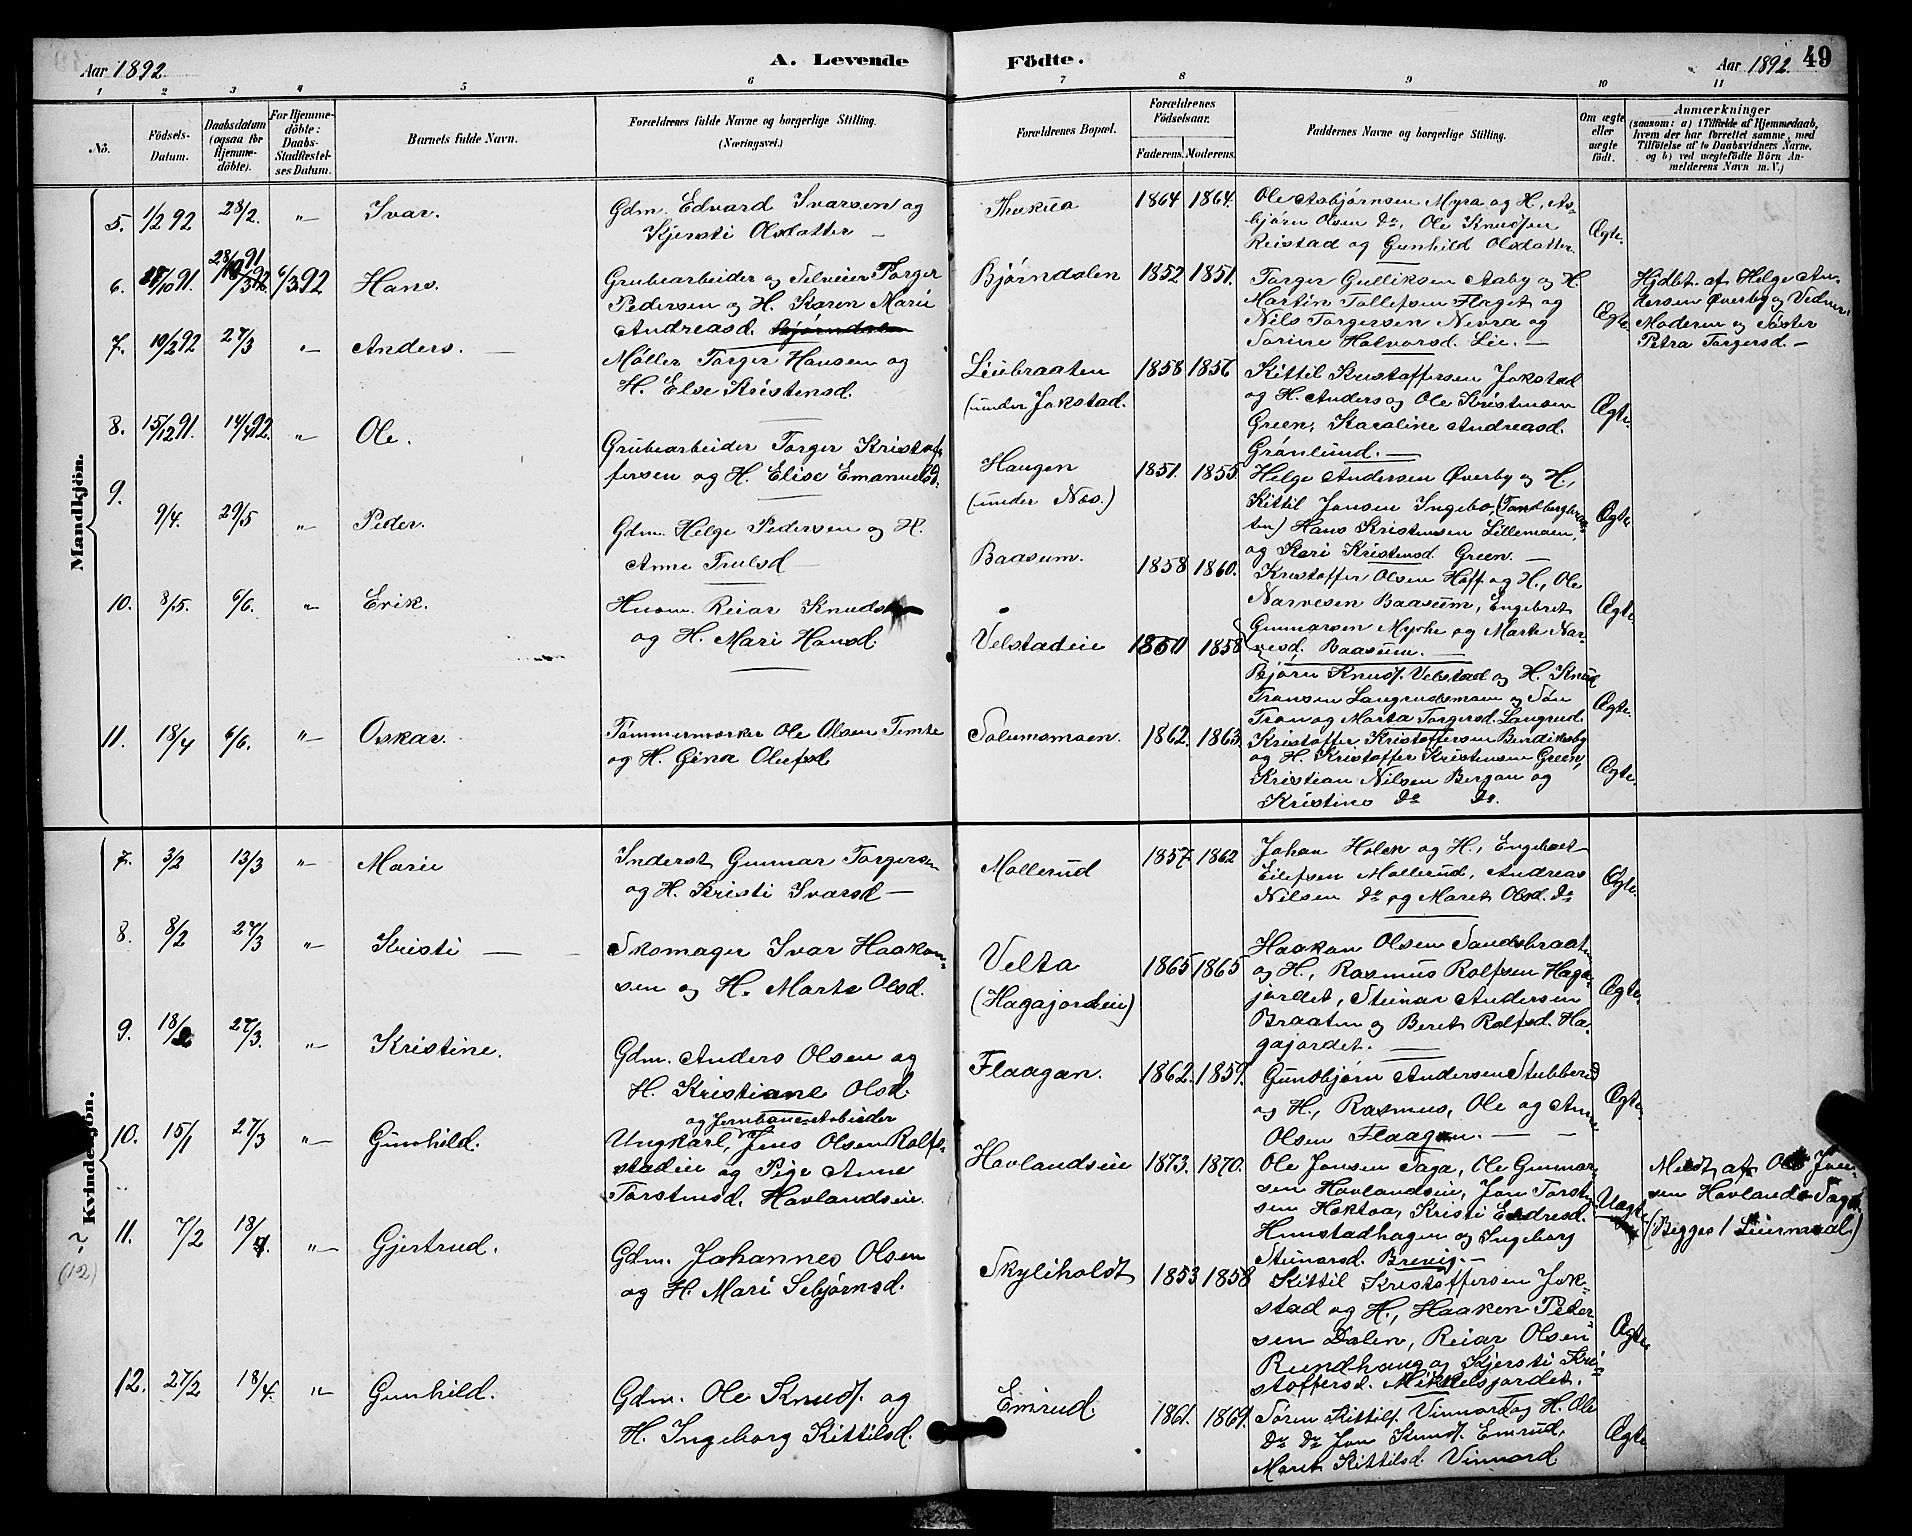 Aar 1892.
A. Levende
Födte.
Aar 1892.
49
1 2 3 4 5 6 7 8 9 10 11
No.
Födsels-
Datum.
Daabsdatum
(ogsaa for
Hjemme-
döbte).
For Hjemme-
döbte:
Daabs-
Stadfæstel-
ses Datum.
Barnets fulde Navn.
Forældrenes fulde Navne og borgerlige Stilling.
(Næringsvei.)
Forældrenes Bopæl.
Forældrenes
Födselsaar.
Faderens. Moderens.
Faddernes Navne og borgerlige Stilling.
Om ægte
eller
uægte
födt.
Anmærkninger
(saasom: a) i Tilfælde af Hjemmedaab,
hvem der har forrettet samme, med
Tilföielse af to Daabsvidners Navne.
og b) ved uægtefödte Börn An-
melderens Navn m. V.)
Mandkjön.
5. 1/2 92 28/2. „ Ivar.
Gdm. Edvard Ivarsen og
Kjersti Olsdatter —
1864 1864.
Ole Asbjørnsen Myra og H., As-
bjørn Olsen do, Ole Knudsen
Reistad og Gunhild Olsdatter.
Ægte.
6. 28/10 91. 28/ 91 /3 92 6/3 92 Hans.
Grubearbeider og Selveier Torger
Pedersen og H. Karen Marie
Andreasd.
Bjørndalen 1852 1851.
Torger Gulliksen Aaby og H.
Martin Tollefsen Flaget og
Nils Torgersen Nevra og
Sorine Halvorsd. Lie. —
Ægte.
Hjdbt. af Helge An-
dersen Øverby og Vidner:
Moderen og Søster
Petra Torgersd. —
7. 10/2 92 27/3 „ Anders. —
Møller Torger Hansen og
H. Else Kristensd.
Liubraaten
(under Jokstad.
1858 1856
Kittil Kristoffersen Jokstad
og H. Anders og Ole Kristensen
Green, Karoline Andreasd.
Grønlund. —
Ægte.
8. 15/12 91. 14/4 92. „ Ole.
Grubearbeider Torger Kristof-
fersen og H. Elise Emanuelsd.
Haugen
(under Næs.)
1851. 1855.
Helge Andersen Øverby og H.,
Kittil Jonsen Ingebo, (Tandbergbraa-
ten) Hans Kristensen Lillemoen,
og Kari Kristensd. Green. —
Ægte
9.
9/4. 29/5 „ Peder.
Gdm. Helge Pedersen og H.
Anne Trulsd —
Baasum. 1858 1860.
Kristoffer Olsen Hoff og H., Ole
Narvesen Baasum, Engebret
Gunnarsen Myrhe og Marte Nar-
vesd. Baasum. —
Ægte.
10. 8/5. 6/6. „ Erik.
Husm. Reiar Knudsen
og H. Mari Hansd.
Velstadeie 1850 1858
Bjørn Knuds. Velstad og H. Knud
Tronsen Langrudsmoen og Søn
Tron og Marta Torgersd. Langrud.
Ægte.
11. 18/4 6/6. „ Oskar.
Tømmermærker Ole Olsen Temte
og H. Gina Olufsd
Solumsmoen. 1862. 1863.
Kristoffer Kristoffersen Bendiksby
og H. Kristoffer Kristensen Green,
Kristian Nilsen Bergan og
Kristine do do.
Ægte.
Kvindekjön.
(12)
7. 3/2 13/3 „ Marie
Inderst Gunnar Torgersen
og H. Kristi Ivarsd —
Mollerud 1857. 1862
Johan Holen og H., Engebret
Eilefsen Mollerud, Andreas
Nilsen do og Maret Olsd. do
Ægte.
8. 8/2 27/3 „ Kristi —
Skomager Ivar Haakon-
sen og H. Marte Olsd.
Velta
(Hagajordeie)
1865 1865
Haakon Olsen Sandsbraaten
og H., Rasmus Rolfsen Haga-
jordet, Steinar Andersen
Braaten og Beret Rolfsd. Ha-
gajordet. —
Ægte.
9. 18/2 27/3. „ Kristine.
Gdm. Anders Olsen og
H. Kristiane Olsd.
Flaagan. 1862. 1859.
Gundbjørn Andersen Stubberud
og H., Rasmus, Ole og Anne
Olsen Flaagan. — —
Ægte.
10. 15/1 27/3 „ Gunhild.
og Jernbane-Arbeider
Ungkarl, Jens Olsen Rolfs-
stadeie og Pige Anne
Torstensd. Havlandseie.
Havlandseie 1873. 1870.
Ole Jonsen Saga, Ole Gunnar-
sen Havlandseie, Jon Torsten-
sen Hoktoa, Kristi Endresd.
Hunstadhagen og Ingeborg
Steinarsd. Brevig. —
Uægte
Meldt af Ole Jon-
sen Havlands-Saga
(Begges 1 Leiermaal.)
11. 7/2 18/4. „ Gjertrud.
Gdm. Johannes Olsen
og H. Mari Sebjørnsd.
Skyliholdt 1853 1858
Kittil Kristoffersen Jok-
stad og H., Haaken Peder-
sen Dalen, Reiar Olsen
Rundhaug og Kjersti Kri-
stoffersd. Mikkelsjordet.
Ægte.
12. 27/2 18/4. „ Gunhild.
Gdm. Ole Knuds. og
H. Ingeborg Kittilsd.
Emrud. 1861. 1869.
Søren Kittils. Vinnord og H. Ole
do do Jon Knuds. Emrud,
Maret Kittilsd. Vinnord
Ægte.